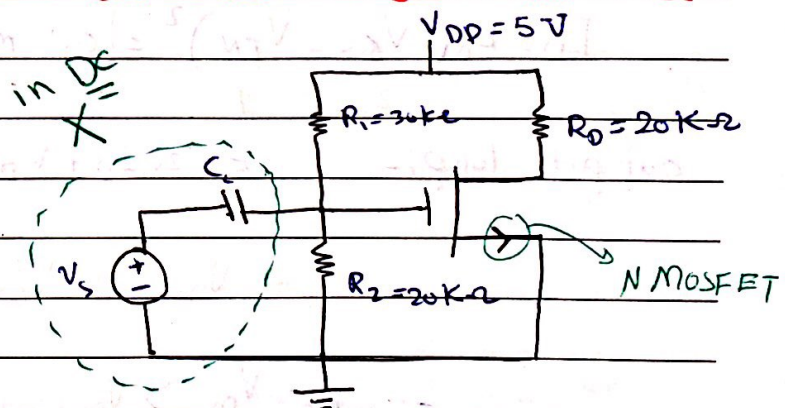 V DD = 5V
in DC
X
R₁ = 30kΩ
R_D = 20KΩ
C꜀
Vs
+
-
R₂ = 20KΩ
N MOSFET